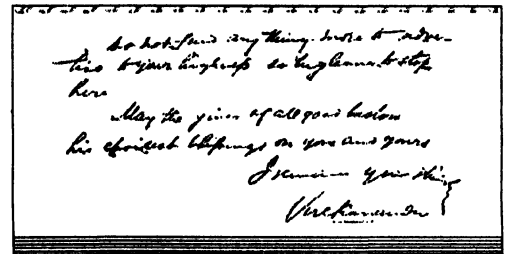 do not find any thing more to adver-
tise to your highness so beg leave to stop
here
May the giver of all good bestow
his choicest blessings on you and yours
I remain yours
Vivekananda